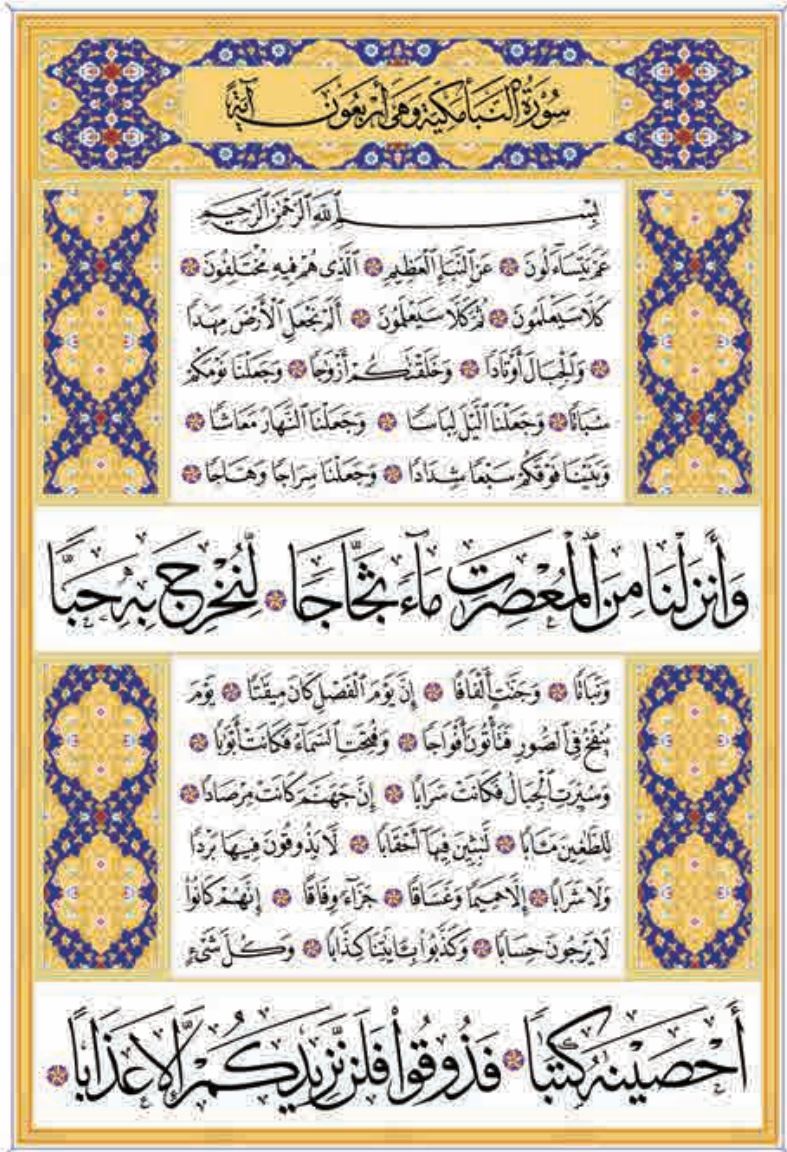 سُورَةُ النَّبَأ مَكِّيَّة وَهِيَ أَرْبَعُونَ آيَة
بِسْمِ ٱللَّهِ ٱلرَّحْمَٰنِ ٱلرَّحِيمِ
عَمَّ يَتَسَآءَلُونَ ۞ عَنِ ٱلنَّبَإِ ٱلْعَظِيمِ ۞ ٱلَّذِى هُمْ فِيهِ مُخْتَلِفُونَ ۞
كَلَّا سَيَعْلَمُونَ ۞ ثُمَّ كَلَّا سَيَعْلَمُونَ ۞ أَلَمْ نَجْعَلِ ٱلْأَرْضَ مِهَٰدًا
۞ وَٱلْجِبَالَ أَوْتَادًا ۞ وَخَلَقْنَٰكُمْ أَزْوَٰجًا ۞ وَجَعَلْنَا نَوْمَكُمْ
سُبَاتًا ۞ وَجَعَلْنَا ٱلَّيْلَ لِبَاسًا ۞ وَجَعَلْنَا ٱلنَّهَارَ مَعَاشًا ۞
وَبَنَيْنَا فَوْقَكُمْ سَبْعًا شِدَادًا ۞ وَجَعَلْنَا سِرَاجًا وَهَّاجًا ۞
وَأَنزَلْنَا مِنَ ٱلْمُعْصِرَٰتِ مَآءً ثَجَّاجًا ۞ لِّنُخْرِجَ بِهِۦ حَبًّا
وَنَبَاتًا ۞ وَجَنَّٰتٍ أَلْفَافًا ۞ إِنَّ يَوْمَ ٱلْفَصْلِ كَانَ مِيقَٰتًا ۞ يَوْمَ
يُنفَخُ فِى ٱلصُّورِ فَتَأْتُونَ أَفْوَاجًا ۞ وَفُتِحَتِ ٱلسَّمَآءُ فَكَانَتْ أَبْوَٰبًا ۞
وَسُيِّرَتِ ٱلْجِبَالُ فَكَانَتْ سَرَابًا ۞ إِنَّ جَهَنَّمَ كَانَتْ مِرْصَادًا ۞
لِّلطَّٰغِينَ مَـَٔابًا ۞ لَّٰبِثِينَ فِيهَآ أَحْقَابًا ۞ لَّا يَذُوقُونَ فِيهَا بَرْدًا
وَلَا شَرَابًا ۞ إِلَّا حَمِيمًا وَغَسَّاقًا ۞ جَزَآءً وِفَاقًا ۞ إِنَّهُمْ كَانُوا۟
لَا يَرْجُونَ حِسَابًا ۞ وَكَذَّبُوا۟ بِـَٔايَٰتِنَا كِذَّابًا ۞ وَكُلَّ شَىْءٍ
أَحْصَيْنَٰهُ كِتَٰبًا ۞ فَذُوقُوا۟ فَلَن نَّزِيدَكُمْ إِلَّا عَذَابًا ۞